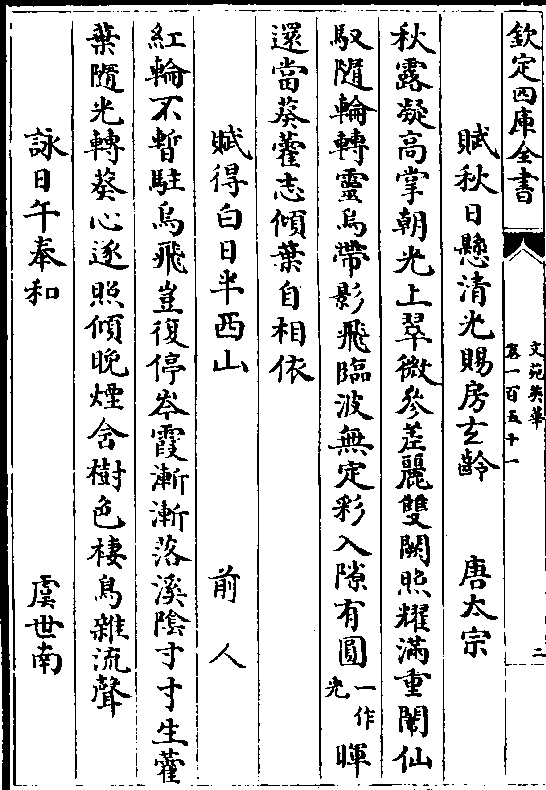 欽定四庫全書
文苑英華
卷一百五十一
二
賦秋日懸清光賜房玄齡 唐太宗
秋露凝高掌朝光上翠微參差麗雙闕照耀滿重闈仙
馭隨輪轉靈烏帶影飛臨波無定彩入隙有圓一作光暉
還當葵藿志傾葉自相依
賦得白日半西山 前人
紅輪不暫駐烏飛豈復停岑霞漸漸落溪陰寸寸生藿
葉隨光轉葵心逐照傾晚煙含樹色棲鳥雜流聲
詠日午奉和 虞世南